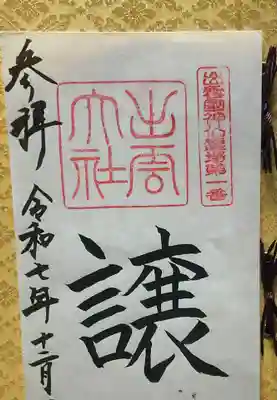 出雲國神仏霊場第一番
出雲大社
譲
参拝
令和七年十二月